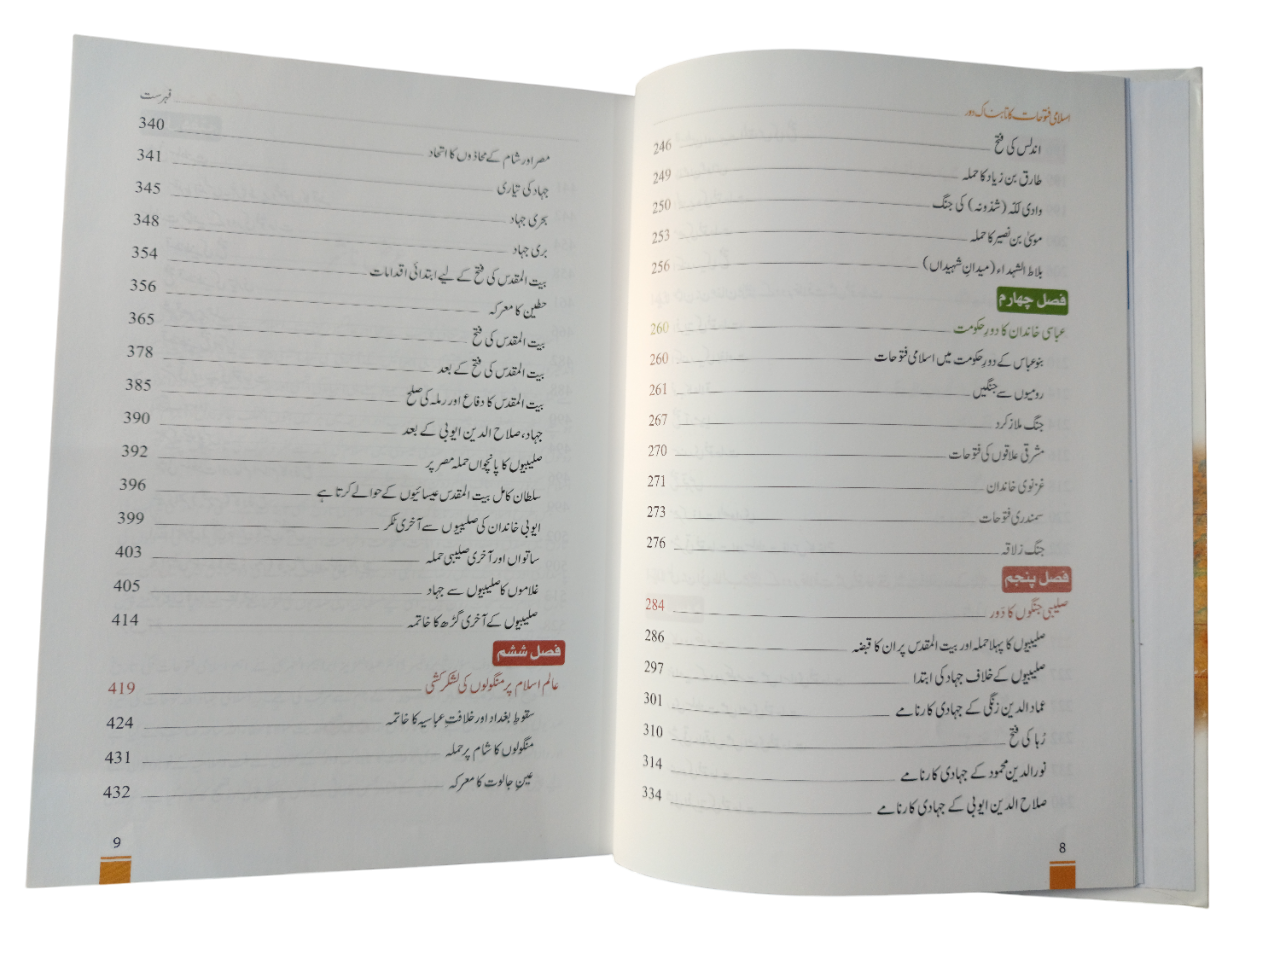 اسلامی فتوحات کا تابناک دور
اندلس کی فتح 246
طارق بن زیاد کا حملہ 249
وادی لکہ (شذونہ) کی جنگ 250
موسیٰ بن نصیر کا حملہ 253
بلاط الشہداء (میدانِ شہیداں) 256
فصل چہارم
عباسی خاندان کا دورِ حکومت 260
بنو عباس کے دورِ حکومت میں اسلامی فتوحات 260
رومیوں سے جنگیں 261
جنگ ملاز کرد 267
مشرقی علاقوں کی فتوحات 270
غزنوی خاندان 271
سمندری فتوحات 273
جنگ زلاقہ 276
فصل پنجم
صلیبی جنگوں کا دَور 284
صلیبیوں کا پہلا حملہ اور بیت المقدس پر ان کا قبضہ 286
صلیبیوں کے خلاف جہاد کی ابتدا 297
عماد الدین زنگی کے جہادی کارنامے 301
رُہا کی فتح 310
نور الدین محمود کے جہادی کارنامے 314
صلاح الدین ایوبی کے جہادی کارنامے 334
8
فہرست
مصر اور شام کے محاذوں کا اتحاد 340
جہاد کی تیاری 341
بحری جہاد 345
بری جہاد 348
بیت المقدس کی فتح کے لیے ابتدائی اقدامات 354
حطین کا معرکہ 356
بیت المقدس کی فتح 365
بیت المقدس کی فتح کے بعد 378
بیت المقدس کا دفاع اور رملہ کی صلح 385
جہاد، صلاح الدین ایوبی کے بعد 390
صلیبیوں کا پانچواں حملہ مصر پر 392
سلطان کامل بیت المقدس عیسائیوں کے حوالے کرتا ہے 396
ایوبی خاندان کی صلیبیوں سے آخری ٹکر 399
ساتواں اور آخری صلیبی حملہ 403
غلاموں کا صلیبیوں سے جہاد 405
صلیبیوں کے آخری گڑھ کا خاتمہ 414
فصل ششم
عالم اسلام پر منگولوں کی لشکر کشی 419
سقوطِ بغداد اور خلافتِ عباسیہ کا خاتمہ 424
منگولوں کا شام پر حملہ 431
عینِ جالوت کا معرکہ 432
9